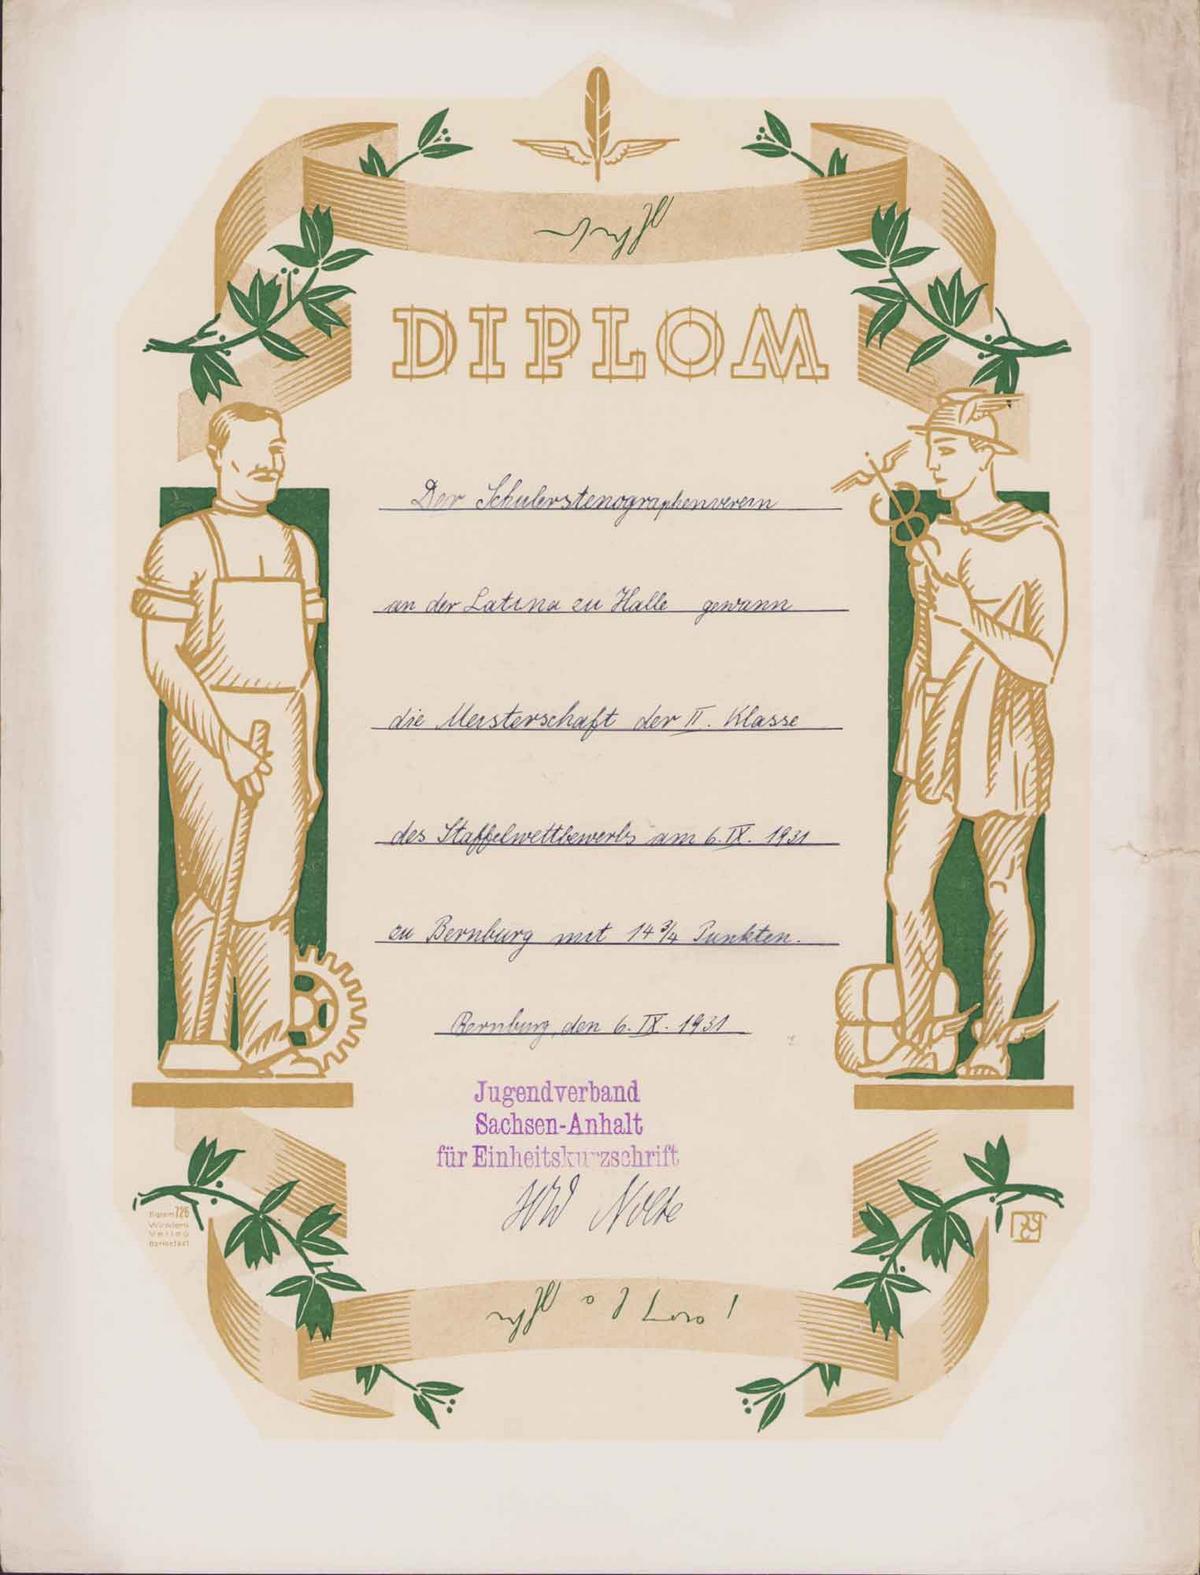 DIPLOM
Der Schülerstenographenverein
an der Latina zu Halle gewann
die Meisterschaft der II. Klasse
des Staffelwettbewerbs am 6. IX. 1931
zu Bernburg mit 14 3/4 Punkten.
Bernburg, den 6. IX. 1931
Jugendverband
Sachsen-Anhalt
für Einheitskurzschrift
Nolte
726
Verlag